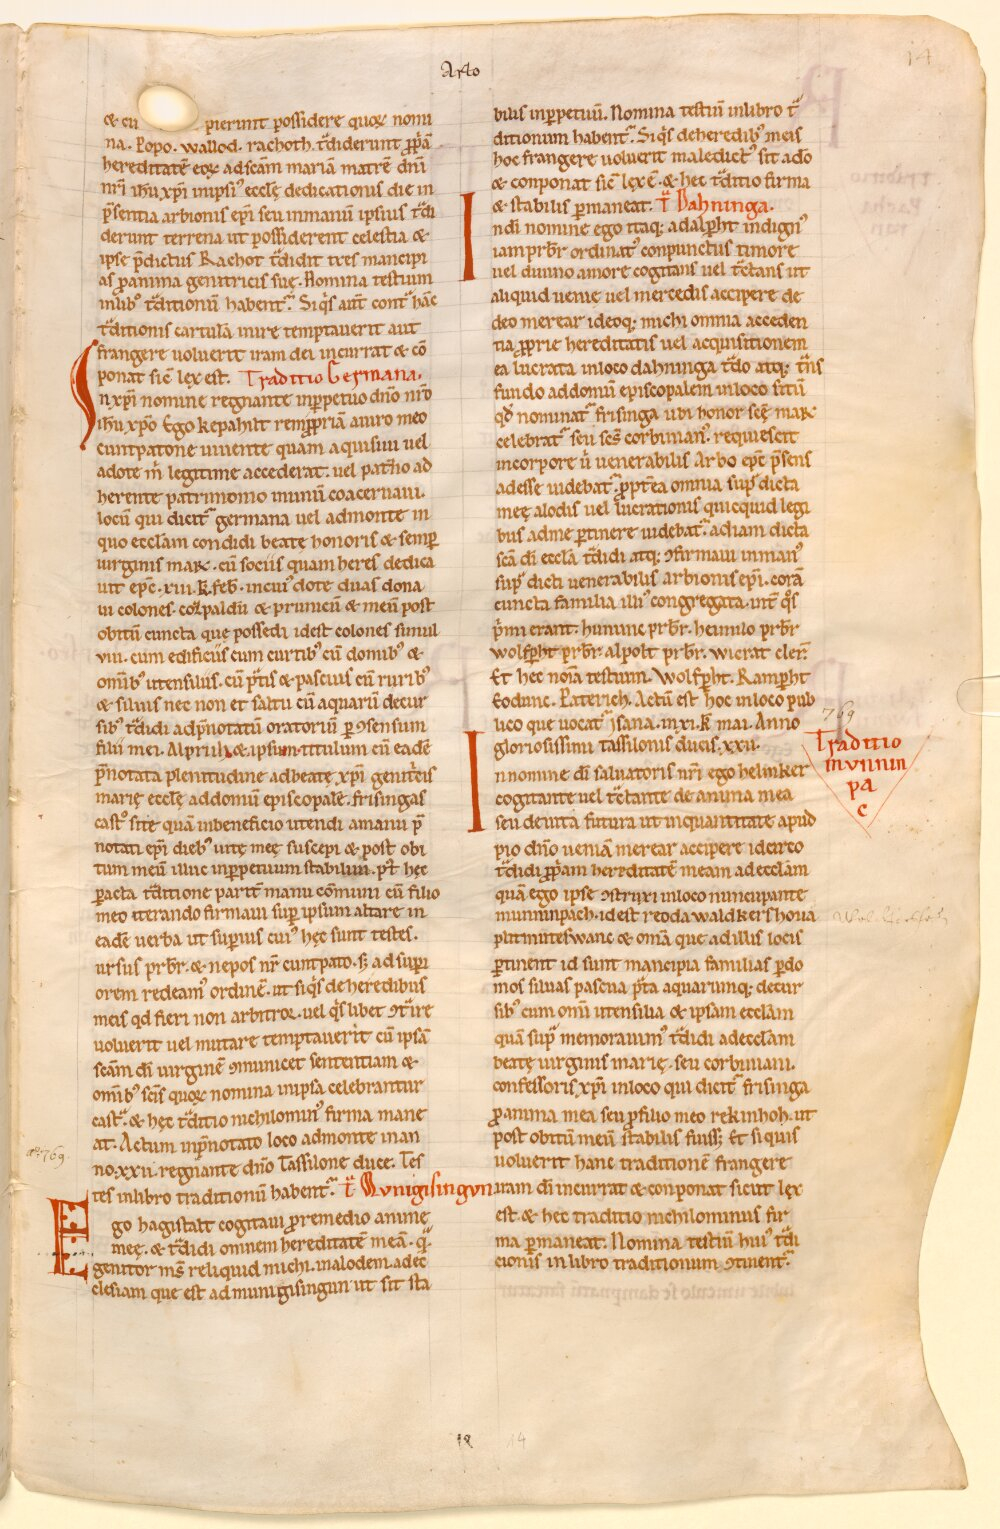 Arbo
14
& cu pierint possidere quoꝝ nomi
na. Popo. wallod. rachoth. t͛diderunt ꝓp̃ã
hereditatẽ eoꝝ ad sc̃am mariã matrẽ dñi
nr̃i ihu xp̃i in ipsiꝰ eccłe dedicationis die in
p̃sentia arbionis ep̃i seu in manũ ipsius t͛di
derunt terrena ut possiderent celestia &
ipse p̃dictus Rachot t͛didit tres mancipi
as ꝓ anima genitricis suę. Nomina testium
in lib͛o t͛ditionũ habent͛. Si q͛s aut̃ cont͛ hãc
t͛ditionis cartulã inire temptauerit aut
frangere uoluerit iram dei incurrat & cõ
ponat sic̃ lex est. Traditio Germana.
In xp̃i nomine regnante in perpetuo dño nr̃o
ihũ xp̃o Ego kepahilt rem ꝓpriã auiro meo
cuntpatone uiuente quam aquisiui uel
a dote m̃ legitime accederat. uel pat͛no ad
herente patrimonio in unũ coaceruaui.
locũ qui dicit͛ germana uel admonte in
quo eccłam condidi beatę honoris & semꝑ
uirginis maꝝ. cũ sociis quam heres dedica
uit ep̃c. xiii. k̃. feb̃. in cuiꝰ dote duas dona
ui colones. cozpaldũ & prunicũ & meũ post
obitũ cuncta que possedi id est colones simul
viii. cum edificiis cum curtibꝰ cũ domibꝰ &
om̃ibꝰ utensiliis. cũ p̃tis & pascuis cũ rurib͛
& siluis nec non et saltu cũ aquarũ decur
sibꝰ t͛didi ad p̃notatũ oratoriũ ꝑ ꝯsensum
filii mei. Aprilis & ipsum titulum cũ eadẽ
p̃notata plenitudine ad beatę xp̃i genit͛cis
marię eccłę ad domũ episcopalẽ. frisingas
cast͛o sitę quã in beneficio utendi a manu p̃
notati ep̃i diebꝰ uitę meę suscepi & post obi
tum meũ illuc in perpetuum stabilim. p͛t hęc
ꝑacta t͛ditione part͛m manu cõmuni cũ filio
meo iterando firmaui suꝑ ipsum altare in
eadẽ uerba ut superius cuiꝰ hęc sunt testes.
ursus pr̃br. & nepos nr̃ cuntpato. s; ad suꝑi
orem redeamꝰ ordinẽ. ut si q͛s de heredibus
meis qd fieri non arbitror. uel q͛s libet ꝯt͛ire
uoluerit uel mutare temptauerit cũ ipsã
sc̃am di uirginẽ ꝯmunicet sententiam &
om̃ibꝰ sc̃is quoꝝ nomina in ipsa celebrantur
cast͛. & hęc t͛ditio nichilominꝰ firma mane
at. Actum in p̃notato loco admonte in an
no. xxii. regnante dño Tassilone duce. Tes
aº 769.
tes in libro traditionũ habent͛. T͛ Munigisingun
Ego hagistalt cogitaui ꝓ remedio anime
meę. & t͛didi omnem hereditatẽ meã. q͛
genitor ms̃ reliquid michi. in alodem. ad ec
clesiam que est ad munigisingun ut sit sta
bilis in perpetuũ. Nomina testiũ in libro t͛
ditionum habent͛. Si q͛s de heredibꝰ meis
hoc frangere uoluerit maledictꝰ sit a dõ
& conponat sic̃ lex ẽ. & hec t͛ditio firma
& stabilis ꝑmaneat. T͛ Dahninga.
In di nomine ego itaq; adalꝑht indignꝰ
iam pr̃br ordinatꝰ conpunctus timore
uel diuino amore cogitans uel t͛ctans ut
aliquid uenie uel mercedis accipere de
deo merear ideoq; michi omnia acceden
tia ꝓprie hereditatis uel acquisitionem
ea lucrata in loco dahninga t͛do atq; t͛ns
fundo ad domũ episcopalem in loco sitũ
qd nominat͛ frisinga ubi honor scę maꝝ
celebrat͛ seu scs̃ corbinianꝰ. requiescit
in corpore ũ uenerabilis Arbo ep̃c p̃sens
adesse uidebat͛. ꝓpt͛ea omnia sup͛ dicta
meę alodis uel lucrationis quicquid legi
bus ad me ꝑtinere uidebat͛. ad iam dicta
scã di eccła t͛didi atq; ꝯfirmaui in manꝰ
sup͛ dicti uenerabilis arbionis ep̃i. corã
cuncta familia illiꝰ congregata. int͛ q͛s
p̃mi erant. hununc pr̃br. heimilo pr̃br
wolfꝑht pr̃br. alpolt pr̃br. wicrat cler̃.
Et hec nõia testium. Wolfꝑht. Ramꝑht
Eodunc. Paterich. Actũ est hoc in loco pub
lico que uocat͛ isana. in xi. k̃ mai. Anno
769
gloriosissimi tassilonis ducis. xxii.
Traditio
in vnnin
pa
c
In nomine di saluatoris nr̃i ego helmker
cogitante uel t͛ctante de anima mea
seu de uita futura ut in quantitate apud
pio dño ueniã merear accipere idcirco
t͛didi ꝓp̃am hereditatẽ meam ad eccłam
quã ego ipse ꝯstruxi in loco nuncupante
muninpach. id est reoda waldkershoua
plitmuteswanc & om̃ia que ad illis locis
ꝑtinent id sunt mancipia familias ꝑ do
mos siluas pascua p̃ta aquarumq; decur
sibꝰ cum om̃i utensilia & ipsam eccłam
quã sup͛ memorauimꝰ t͛didi ad eccłam
beatę uirginis marię. seu corbiniani.
confessoris xp̃i in loco qui dicit͛ frisinga
ꝓ anima mea seu ꝓ filio meo rekinhoh. ut
post obitũ meũ stabilis fuiss; Et si quis
uoluerit hanc traditionẽ frangere
iram di incurrat & conponat sicut lex
est & hec traditio nichilominus fir
ma ꝑmaneat. Nomina testiũ huiꝰ t͛di
cionis in libro traditionum ꝯtinent͛.
18 14